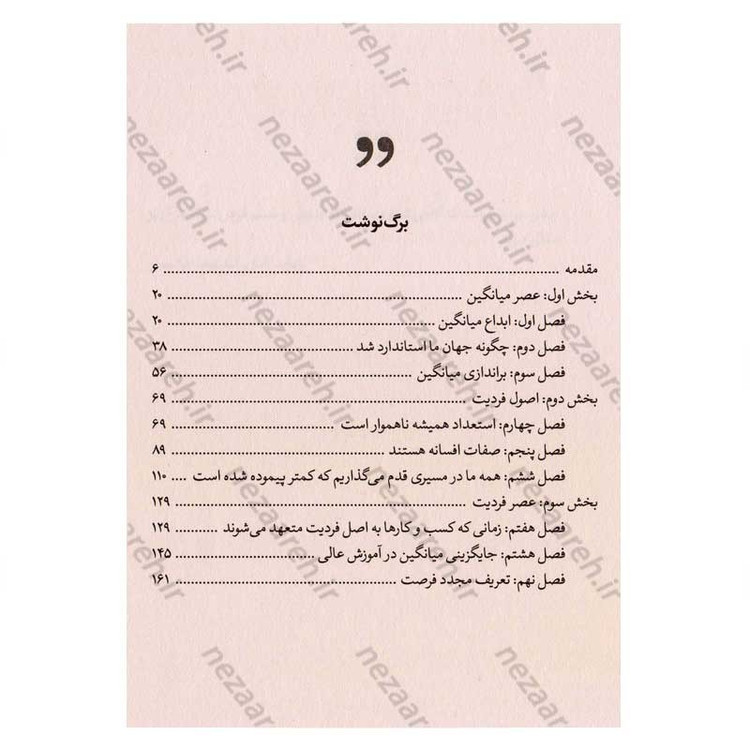 برگ‌نوشت
مقدمه ........ ۶
بخش اول: عصر میانگین ........ ۲۰
فصل اول: ابداع میانگین ........ ۲۰
فصل دوم: چگونه جهان ما استاندارد شد ........ ۳۸
فصل سوم: براندازی میانگین ........ ۵۶
بخش دوم: اصول فردیت ........ ۶۹
فصل چهارم: استعداد همیشه ناهموار است ........ ۶۹
فصل پنجم: صفات افسانه هستند ........ ۸۹
فصل ششم: همه ما در مسیری قدم می‌گذاریم که کمتر پیموده شده است .... ۱۱۰
بخش سوم: عصر فردیت ........ ۱۲۹
فصل هفتم: زمانی که کسب و کارها به اصل فردیت متعهد می‌شوند ........ ۱۲۹
فصل هشتم: جایگزینی میانگین در آموزش عالی ........ ۱۴۵
فصل نهم: تعریف مجدد فرصت ........ ۱۶۱
nezaareh.ir